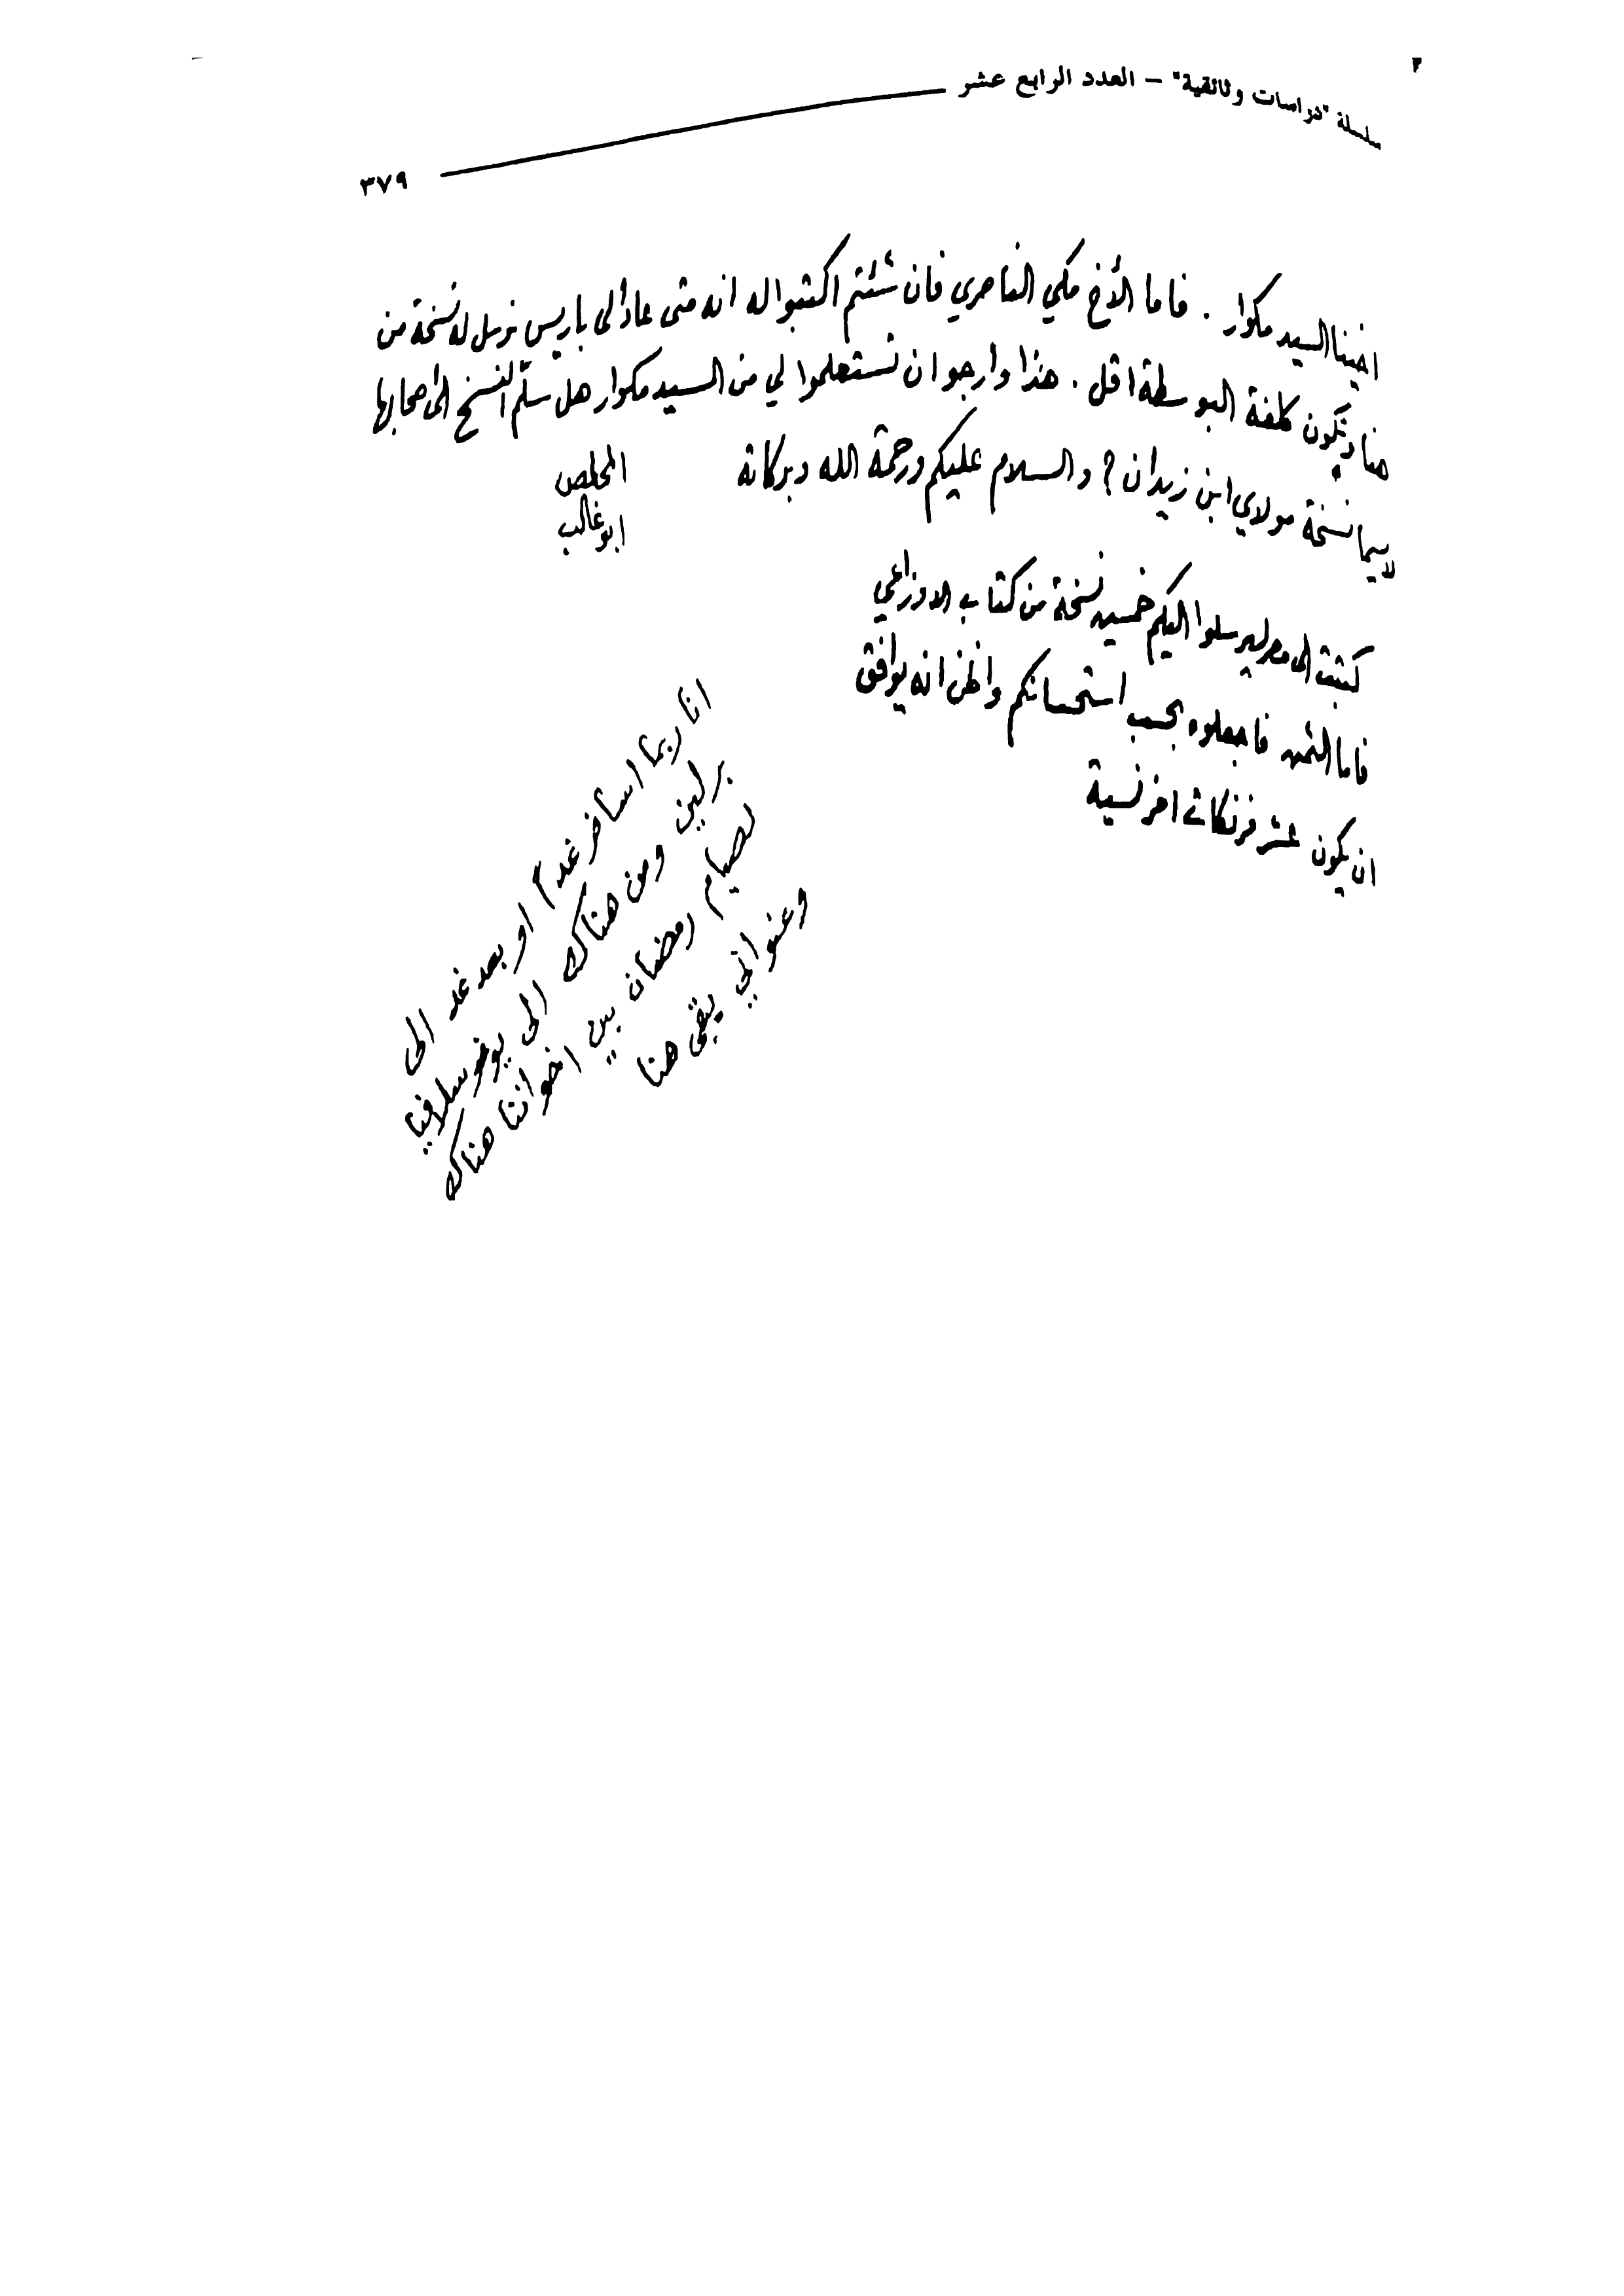 سلسلة "دراسات وثائقية" – العدد الرابع عشر
٣٧٩
اخينا السيد مكوار . فاما الأخ مكي الناصري فان شئتم اكتبوا له انه متى عاد الى باريس نرسل له نسخة من
هنا وتكون كلفة البوسطة اقل . هذا وارجو ان تستعلموا لي من السيد مكوار هل سلّم النسخ الى اصحابها
لا سيما نسخة مولاي ابن زيدان ؟ والسلام عليكم ورحمة الله وبركاته
المخلص
ابو غالب
كتبت الى مصر ليرسلوا اليكم خمسين نسخة من كتاب الاوزاعي
فاما الثمن فاجعلوه بحسب استحسانكم واظن انه يوافق
ان يكون عشر فرنكات افرنسية
انا ربما اسافر غداً او بعد غد الى
برلين ومن هناك الى يوغوسلافيا
لصيام رمضان بين اخواننا هناك
وعنواني يبقى هنا